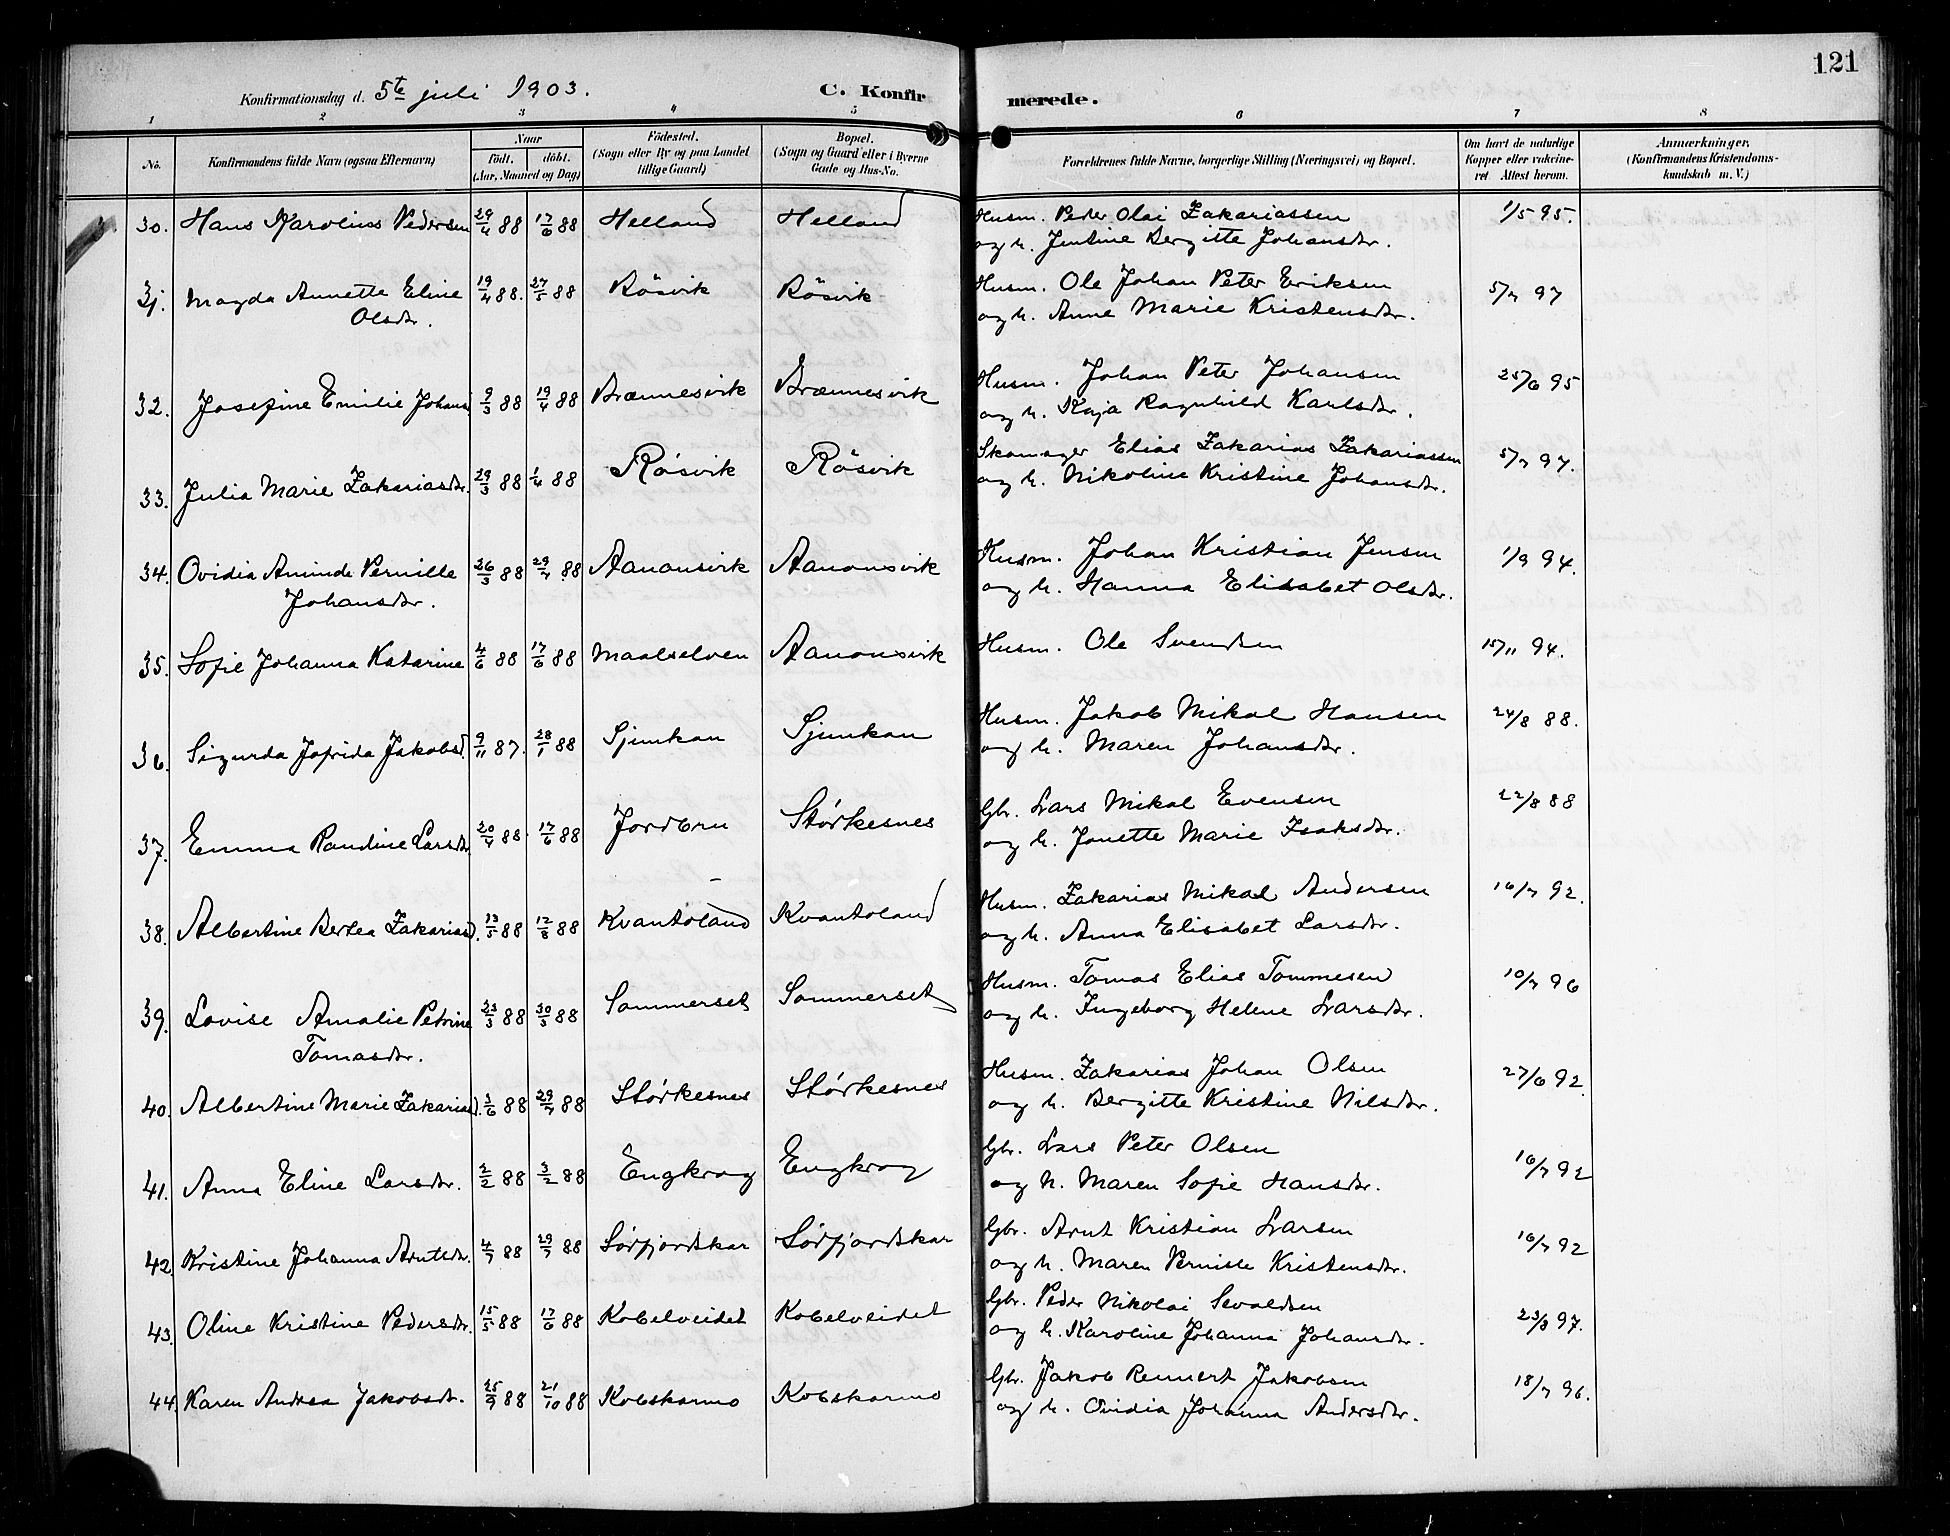 121
Konfirmationsdag d. 5te juli 1903. C. Konfirmerede.
1 2 3 4 5 6 7 8
No. Konfirmandens fulde Navn (ogsaa Efternavn) Naar født. døbt. (Aar, Maaned og Dag) Fødested. (Sogn eller By og paa Landet tillige Gaard) Bopæl. (Sogn og Gaard eller i Byerne Gade og Hus-No. Forældrenes fulde Navne, borgerlige Stilling (Næringsvei) og Bopæl. Om havt de naturlige Kopper eller vakcineret Attest herom. Anmærkninger. (Konfirmandens Kristendomskundskab m. V.)
30. Hans Karolius Pedersen 29/4 88 17/6 88 Helland Helland Husm. Peder Olai Zakariassen 1/5 95.
og h. Jentine Bergitte Johansdr.
31. Magda Annette Eline 19/4 88. 27/5 88 Røsvik Røsvik Husm. Ole Johan Peter Eriksen 5/7 97
Olsdr. og h. Anne Marie Kristensdr.
32. Josefine Emilie Johans 9/3 88 19/4 88 Brænnesvik Brænnesvik Husm. Johan Peter Johansen 25/6 95
og h. Kaja Ragnhild Karlsdr.
33. Julia Marie Zakariasdr. 29/3 88 1/4 88 Røsvik Røsvik Skomager Elias Zakarias Zakariassen 5/7 97.
og h. Nikoline Kristine Johansdr.
34. Ovidia Aminde Pernille 26/3 88 29/7 88 Aanonsvik Aanonsvik Husm. Johan Kristian Jensen 1/9 94.
Johansdr. og h. Hanna Elisabet Olsdr.
35. Sofie Johanna Katarine 4/6 88 17/6 88 Maalselven Aanonsvik Husm. Ole Svendsen 15/11 94.
36. Sigurda Jofrida Jakobsd. 9/11 87. 28/1 88 Sjunkan Sjunkan Husm. Jakob Mikal Hansen 24/8 88.
og h. Maren Johansdr.
37. Emma Randine Larsdr. 20/4 88. 17/6 88 Jordbru Størkesnes Gbr. Lars Mikal Evensen 22/8 88
og h. Jonette Marie Isaksdr.
38. Albertine Bertea Zakariasd. 13/5 88 12/8 88 Kvantoland Kvantoland Husm. Zakarias Mikal Andersen 16/7 92.
og h. Anna Elisabet Larsdr.
39. Lovise Amalie Petrine 23/3 88 30/3 88 Sommerset Sommerset Husm. Tomas Elias Tommesen 10/7 96
Tomasdr. og h. Ingeborg Helene Larsdr.
40. Albertine Marie Zakariasd. 3/6 88 29/7 88 Størkesnes Størkesnes Husm. Zakarias Johan Olsen 27/6 92.
og h. Bergitte Kristine Nilsdr.
41. Anna Eline Larsdr. 2/2 88 3/2 88 Engkrog Engkrog Gbr. Lars Peter Olsen 16/7 92
og h. Maren Sofie Hansdr.
42. Kristine Johanna Arntsdr. 4/7 88 29/7 88 Sørfjordskar Sørfjordskar Gbr. Arnt Kristian Larsen 16/7 92
og h. Maren Pernille Kristensdr.
43. Oline Kristine Pedersdr. 15/5 88 17/6 88 Kobelveidet Kobelveidet Gbr. Peder Nikolai Sevaldsen 23/8 97.
og h. Karoline Johanna Johansdr.
44. Karen Andrea Jakobsdr. 25/9 88 21/10 88 Kobskarmo Kobskarmo Gbr. Jakob Rennert Jakobsen 18/7 96.
og h. Ovidia Johanna Andersdr.